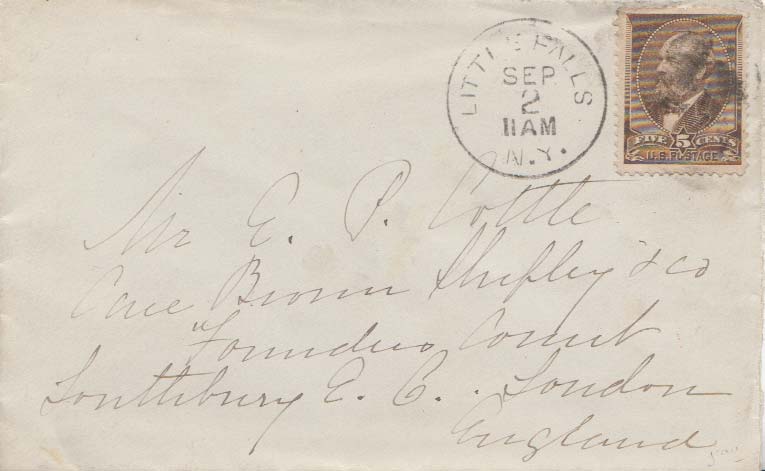 LITTLE FALLS
SEP
2
11 AM
N.Y.
FIVE 5 CENTS
U.S. POSTAGE
Mr E. P. Cottle
Care Brown Shipley & co
"Founders Court
Louthbury E. C. . London
England